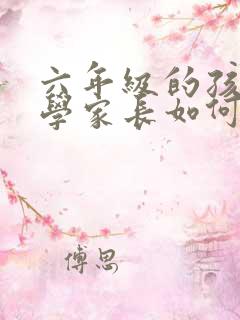 六年級的孩
學家長如何
傅思